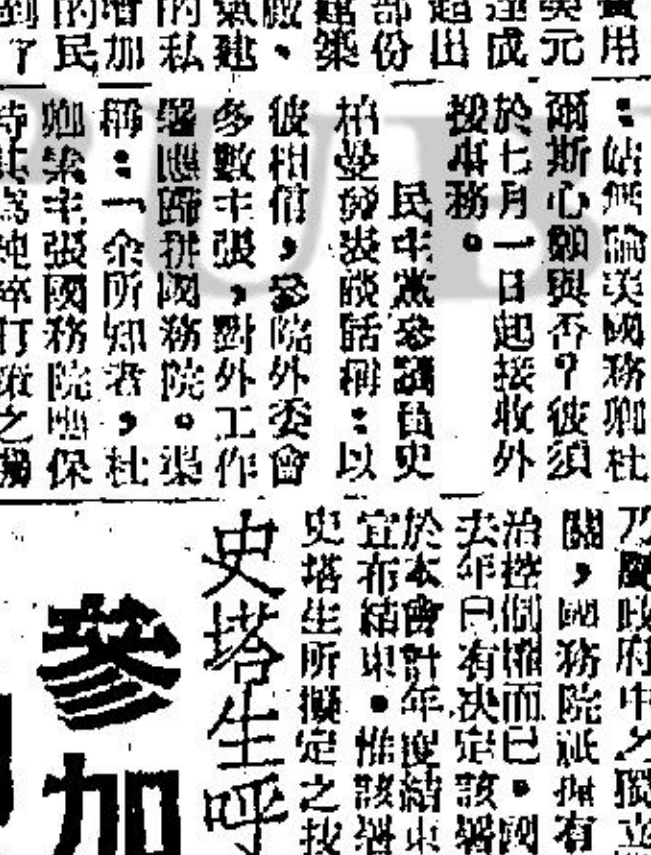 費用
美元
達成
超出
部份
建築
廠、
氣建
的私
增加
的民
到了
：姑無論美國務卿杜
爾斯心願與否？彼須
於七月一日起接收外
援事務。
民主黨參議員史
柏曼發表談話稱：以
彼相信，參院外委會
多數主張，對外工作
署應歸拼國務院。渠
稱：一余所知者，杜
主張國務院應保
持其為純粹打之
乃屬政府中之獨立
關，國務院祇有
治控制權而已。國
去年已有決定該署
於本會計年度結束
宣布結束。惟該署
史塔生所擬定之技
史塔生呼
參加